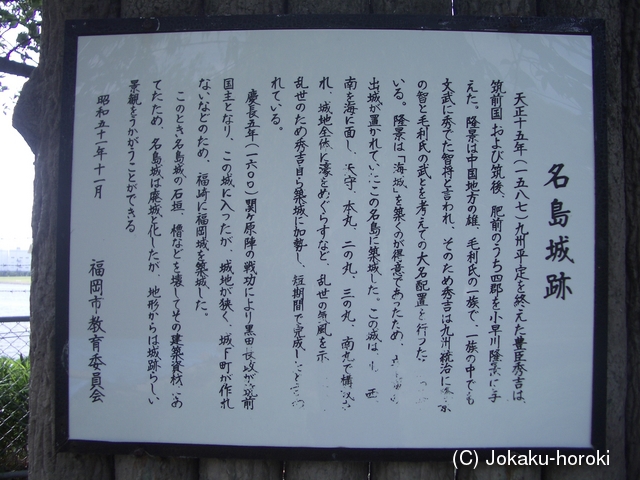 名島城跡
天正十五年（一五八七）九州平定を終えた豊臣秀吉は、
筑前国および筑後、肥前のうち四郡を小早川隆景に与
えた。隆景は中国地方の雄、毛利氏の一族で、一族の中でも
文武に秀でた智将と言われ、そのため秀吉は九州統治に隆景
の智と毛利氏の武とを考えての大名配置を行った。
いる。隆景は「海城」を築くのが得意であったため、
出城が置かれていたこの名島に築城した。この城は、 西
南を海に面し、天守、本丸、二の丸、三の丸、南丸で構
れ、城地全体に濠をめぐらすなど、乱世の気風を示
乱世のため秀吉自ら築城に加勢し、短期間で完成したと
れている。
慶長五年（一六〇〇）関ケ原陣の戦功により黒田長政が筑前
国主となり、この城に入ったが、城地が狭く、城下町が作れ
ないなどのため、福崎に福岡城を築城した。
このとき名島城の石垣、櫓などを壊してその建築資材にあ
てたため、名島城は廃城と化したが、地形からは城跡らしい
景観をうかがうことができる。
昭和五十一年十一月
福岡市教育委員会
(C) Jokaku-horoki